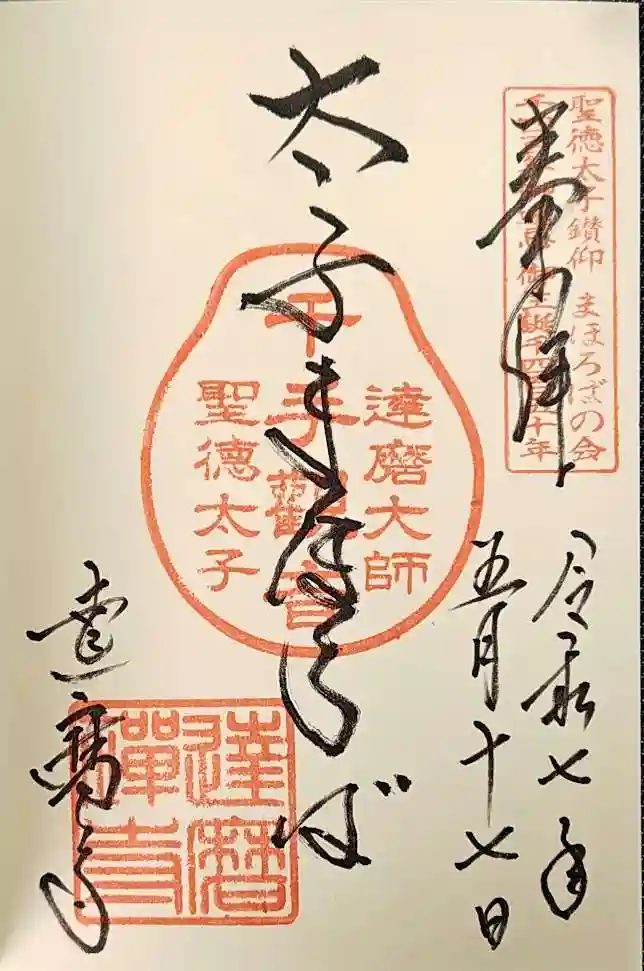 奉拝
聖徳太子鑽仰 まほろばの会
御生誕千四百五十年
令和七年
五月十七日
太子まほろば
達磨大師
千手觀音
聖徳太子
達磨寺
達磨
禪寺